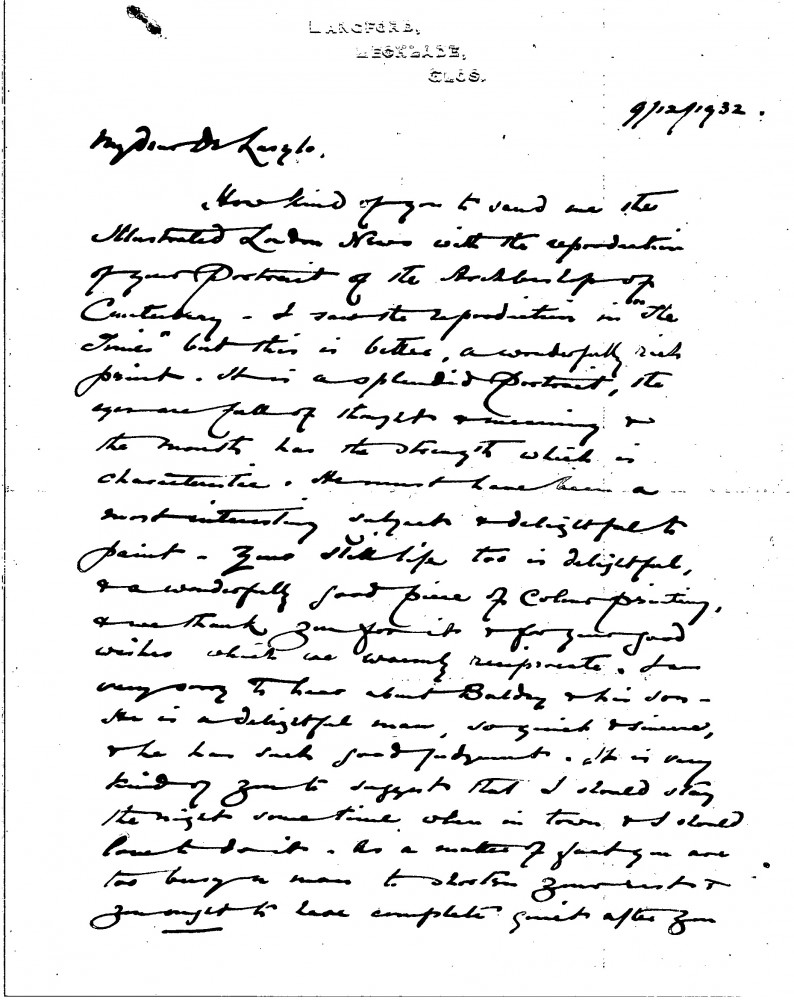 LANGFORD,
LECHLADE,
GLOS.
9/12/1932.
My dear De Laszlo,
How kind of you to send me the
Illustrated London News with the reproduction
of your Portrait of the Archbishop of
Canterbury – I saw the reproduction in "The
Times" but this is better, a wonderfully rich
print. It is a splendid Portrait, the
eyes are full of thought & meaning &
the mouth has the strength which is
characteristic. He must have been a
most interesting subject & delightful to
paint – Your still life too is delightful,
& a wonderfully good piece of Colour printing,
& we thank you for it & for your good
wishes which we warmly reciprocate. I am
very sorry to hear about Baldry & his son –
He is a delightful man, so quick & sincere,
& he has such good judgment. It is very
kind of you to suggest that I should stay
the night some time when in town & I should
love to do it. As a matter of fact you are
too busy a man to shorten your rest &
you ought to have complete quiet after you